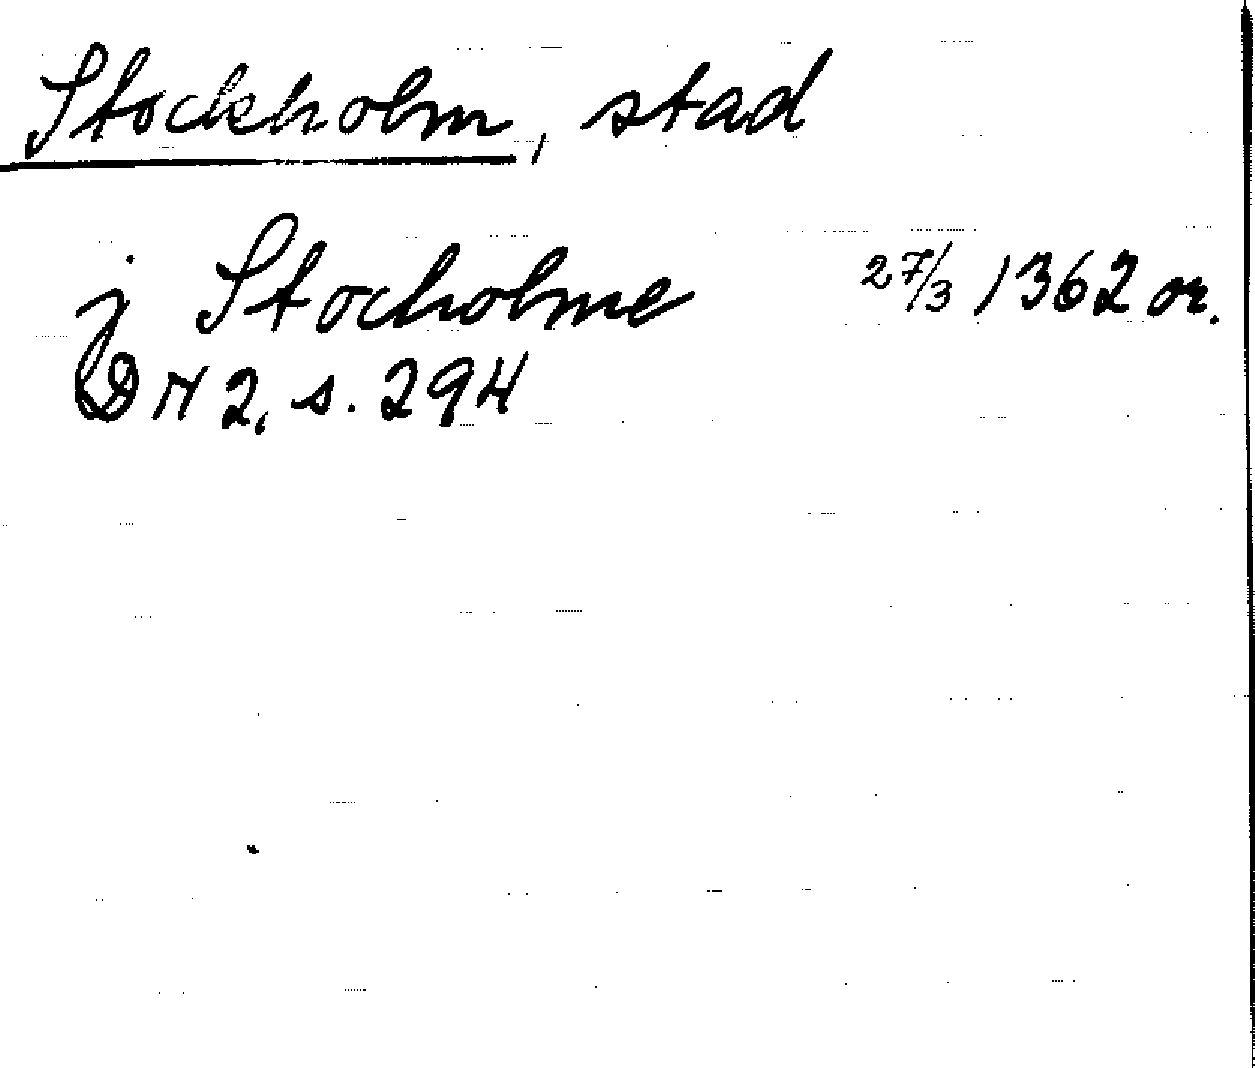 Stockholm, stad
j Stocholme 27/3 1362 or.
DN 2, s. 294